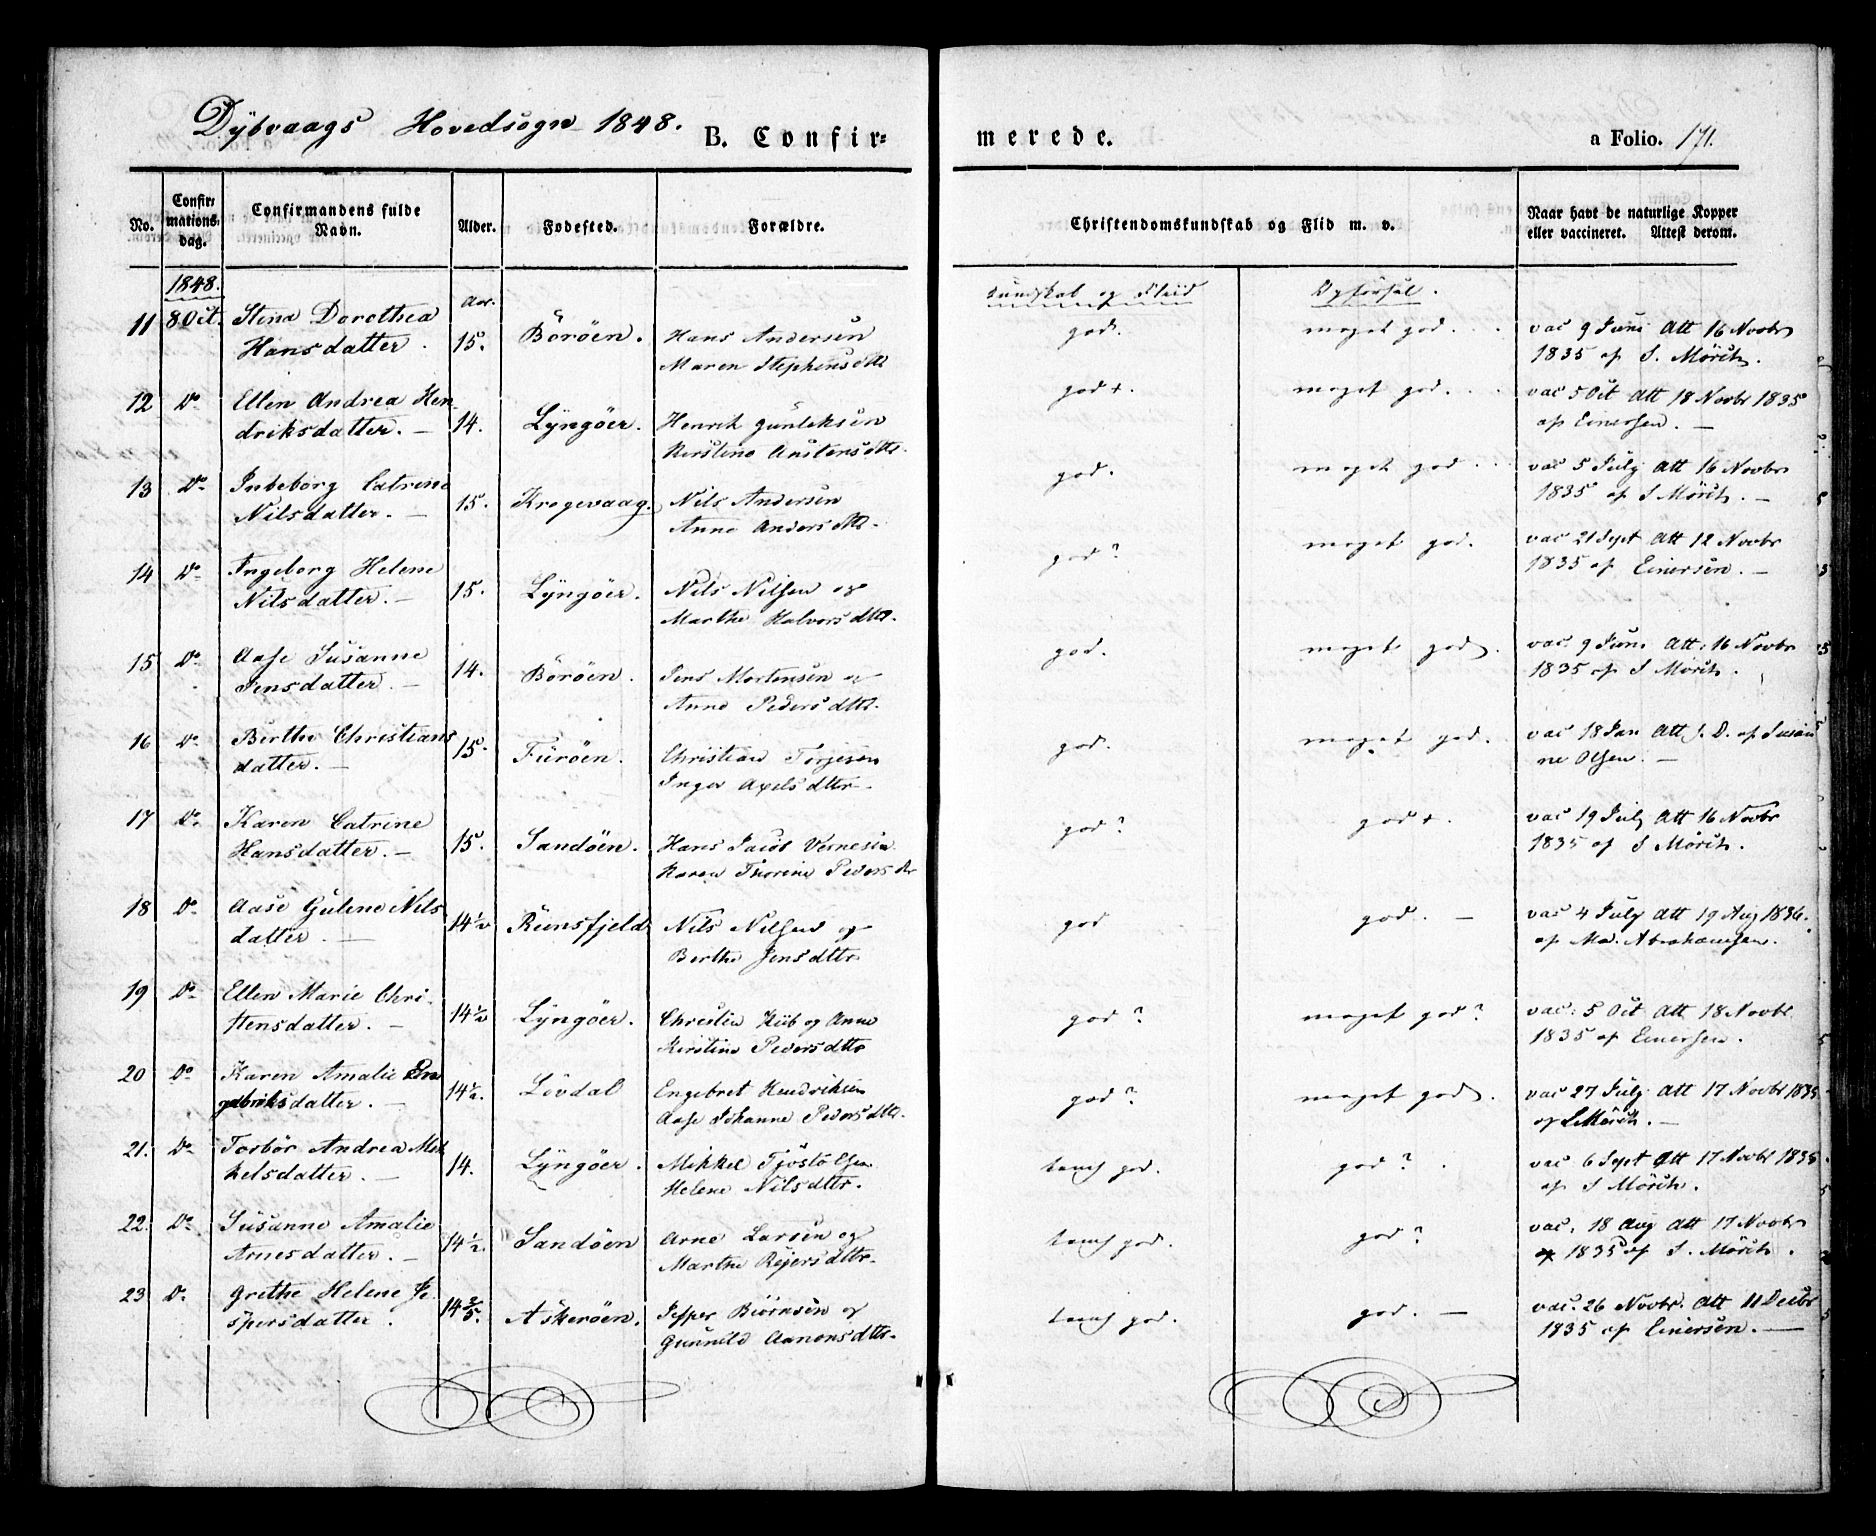 Dÿbvaags Hovedsogn 1848.
B. Confirmerede.
a Folio. 171.
No.
Confirmationsdag.
Confirmandens fulde Navn.
Alder.
Fødested.
Forældre.
Christendomskundskab og Flid m. v.
Naar havt de naturlige Kopper eller vaccineret. Attest derom.
1848.
Aar.
Kundskab og Fliid
Opførsel.
11 8 Oct. Stina Dorothea 15. Böröen. Hans Andersen god. meget god. vac 9 Juni Att 16 Novbr
Hansdatter. Maren Stephensdtt 1835 af S. Mörch.
12 Do Ellen Andrea Hen 14. Lÿngöer. Henrik Gunleksen god +. meget god. vac 5 Oct Att 18 Novbr 1835
driksdatter. Kirstine Austensdtt. af Einersen.
13 Do Inbeborg Catrine 15. Kregevaag. Nils Andersen god. meget god. vac 5 July Att 16 Novbr
Nilsdatter. Anne Andersdtt. 1835 af S Mörch.
14 Do Ingeborg Helene 15. Lÿngöer. Nils Nilsen og god? meget god. vac 21 Sept Att 12 Novbr
Nilsdatter. Marthe Halvorsdtt. 1835 af Einersen.
15 Do Aase Susanne 14. Böröen. Jens Mortensen og god. meget god. vac 9 Juni Att. 16 Novbr
Jensdatter. Anne Pedersdtt. 1835 af S Mörch.
16 Do Birthe Christians 15. Furöen. Christian Torjesen god. meget god. vac 18 Jan Att s. D. af Susan
datter. Inger Axelsdttr. ne Olsen.
17 Do Karen Catrine 15. Sandöen. Hans Jacob Vernesen god? god +. vac 19 July Att 16 Novbr
Hansdatter. Karen Thorine Pedersdtr 1835 af S Mörch.
18 Do Aase Gulene Nils 14½ Reensfjeld Nils Nilsen og god god. vac 4 July Att 19 Aug 1836.
datter. Berthe Jensdttr af Md. Abrahamsen.
19 Do Ellen Marie Chri 14½ Lÿngöer. Christen Kiib og Anne god? meget god? vac: 5 Oct Att 18 Novbr
stensdatter. Kirstine Pedersdttr 1835 af Einersen.
20 Do Karen Amalie En 14½. Lövdal Engebret Hendriksen god? meget god. vac 27 July Att 17 Novbr 1835
gebriksdatter. Aase Johanne Pedersdtt. af S Mörch.
21. Do Torbör Andrea Mik 14. Lÿngöer. Mikkel Tjöstolsen temf god. god? vac 6 Sept Att 17 Novbr 1835
kelsdatter. Helene Nilsdttr. af S Mörch.
22. Do Susanne Amalie 14½. Sandöen Arne Larsen og temf god. god? vac. 18 Aug Att 17 Novbr
Arnesdatter. Marthe Rejersdttr. 1835 af S. Mörch.
23 Do Grethe Helene Je 14⅖. Askeröen. Jesper Biörnsen og temf god. god. vac. 26 Novbr. Att 11 Decbr
spersdatter. Gunnild Aanonsdttr. 1835 af Einersen.